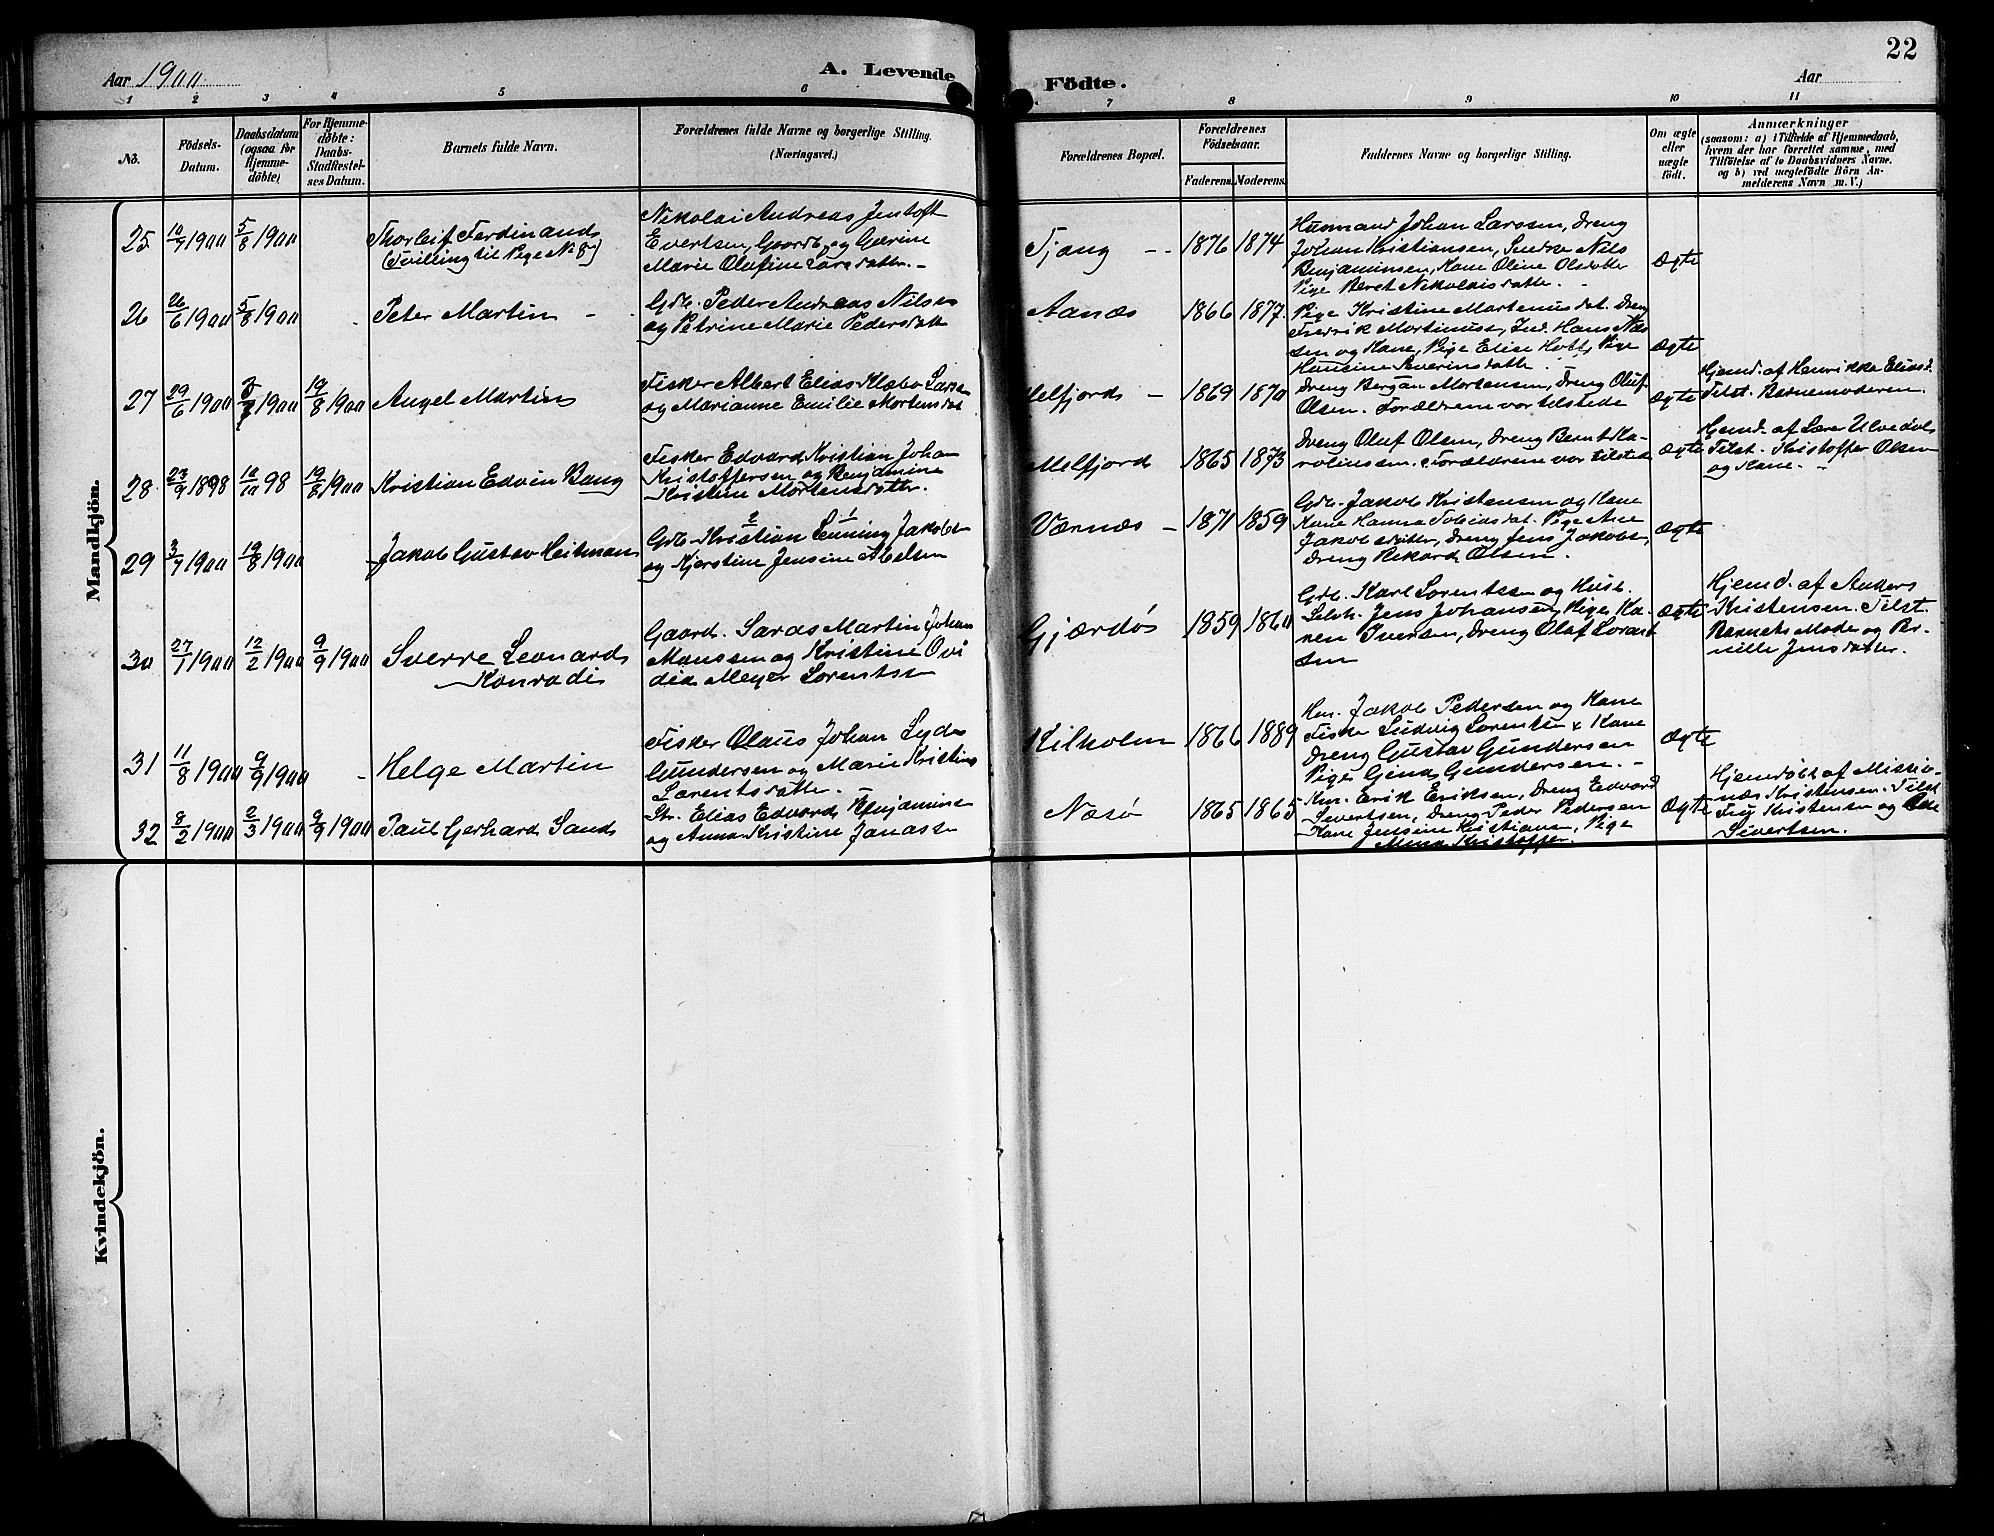 22
Aar 1900
A. Levende
Födte.
Aar
1 2 3 4 5 6
7 8 9 10 11
No.
Födsels-
Datum.
Daabsdatum
(ogsaa for
Hjemme-
döbte)
For Hjemme-
döbte:
Daabs-
Stadfestel-
ses Datum.
Barnets fulde Navn.
Forældrenes fulde Navne og borgerlige Stilling.
(Næringsvei.)
Forældrenes Bopæl.
Forældrenes
Födselsaar.
Faderens. Moderens.
Faddernes Navne og borgerlige Stilling.
Om ægte
eller
uægte
födt.
Anmærkninger
(saasom: a) i Tilfælde af Hjemmedaab,
hvem der har forrettet samme, med
Tilföielse af to Daabsvidners Navne.
og b) ved uægtefödte Börn An-
melderens Navn m. V.)
Mandkjön.
25 10/7 1900 5/8 1900
Thorleif Ferdinand
(Tvilling til Pige No 8)
Nikolai Andreas Jentoft
Evertsen, Gaardb. og Gurine
Marie Olufine Larsdatter. –
Tjong – 1876 1874
Husmand Johan Larssen, Dreng
Johan Kristiansen, Nils
Benjaminsen, Kone Oline Olsdatter
Pige Beret Nikolaisdatter. –
Ægte
26 26/6 1900 5/8 1900
Peter Martin –
Gdb. Peder Andreas Nilsen
og Petrine Marie Pedersdatter
Aanæs 1866 1877
Pige Kristine Martenusdat. Dreng
Fredrik Martinuss, Ind. Hans Nils
sen og Kone, Pige Elise Pige
Hansine Severinsdatter.
Ægte
27 29/6 1900 1900 19/8 1900
Angel Martin
Fisker Albert Elias Klæbo Larsen
og Marianne Emilie Mortensdat
Melfjord – 1869 1870
Dreng Bergan Mortensen, Dreng Oluf
Olsen. Forældrene var tilstede
Ægte
Hjemd. af Henrikke Eliasd.
Tilst. Barnemoderen.
28 23/9 1898 10/10 98 19/8 1900
Kristian Edvin Bang
Fisker Edvard Kristian Johan
Kristoffersen og Benjamine
Kristine Mortensdatter.
Melfjord 1865 1873
Dreng Oluf Olsen, Dreng Bernt Ka-
rolinssen. Forældrene var tilstede
Ægte
Hjemd. af Lærer Ulvedal
Tilst. Kristoffer Olsen
og Kone. –
29 3/7 1900 19/8 1900
Jakob Gustav Heitman
Gdb. Kristian Lenning Jakobs
2 1
og Kjerstine Jensine Abelsen
Værnæs – 1871 1859
Gdb. Jakob Kristensen og Kone
Kone Hanna Tobiasdat. Pige Ane
Jakobsdatter, Dreng Jens Jakobs,
Dreng Rikard Olsen.
Ægte
30 27/1 1900 12/2 1900 9/9 1900
Sverre Leonard
Konradi
Gaard. Saras Martin Johan
Monssen og Kristine Ovi
dia Meyer Lorentse
Gjærdøs 1859 1860
Gdb. Karl Lorentssen og Hust.
Selvh. Jens Johansen, Pige Ka-
ren Iversen, Dreng Olaf Lorent
sen
Ægte
Hjemd. af Anders
Kristensen. Tilst.
Barnets Moder og Per-
nille Jensdatter.
31 11/8 1900 9/9 1900 –
Helge Martin
Fisker Olaus Johan Lyder
Gundersen og Marie Kristine
Lorentsdatter. –
Kilholm 1866 1889
Hm. Jakob Pedersen og Kone
Fisker Ludvig Lorents & Kone
Dreng Gustav Gundersen
Pige Gjenda Gundersen. –
Ægte
32 8/2 1900 2/3 1900 9/9 1900
Paul Gerhard Sand
Str. Elias Edvard Benjamine
og Anna Kristine Janasse
Næsø 1865 1865
Hm. Erik Eriksen, Dreng Edvard
Sivertsen, Dreng Peder Pedersen
Kone Jensine Kristians, Pige
Mina Kristoffer.
Ægte
Hjemdøbt af Missio-
næs Kristensen. Tilst
Fru Kristensen og
Sivertsen.
Kvindekjön.